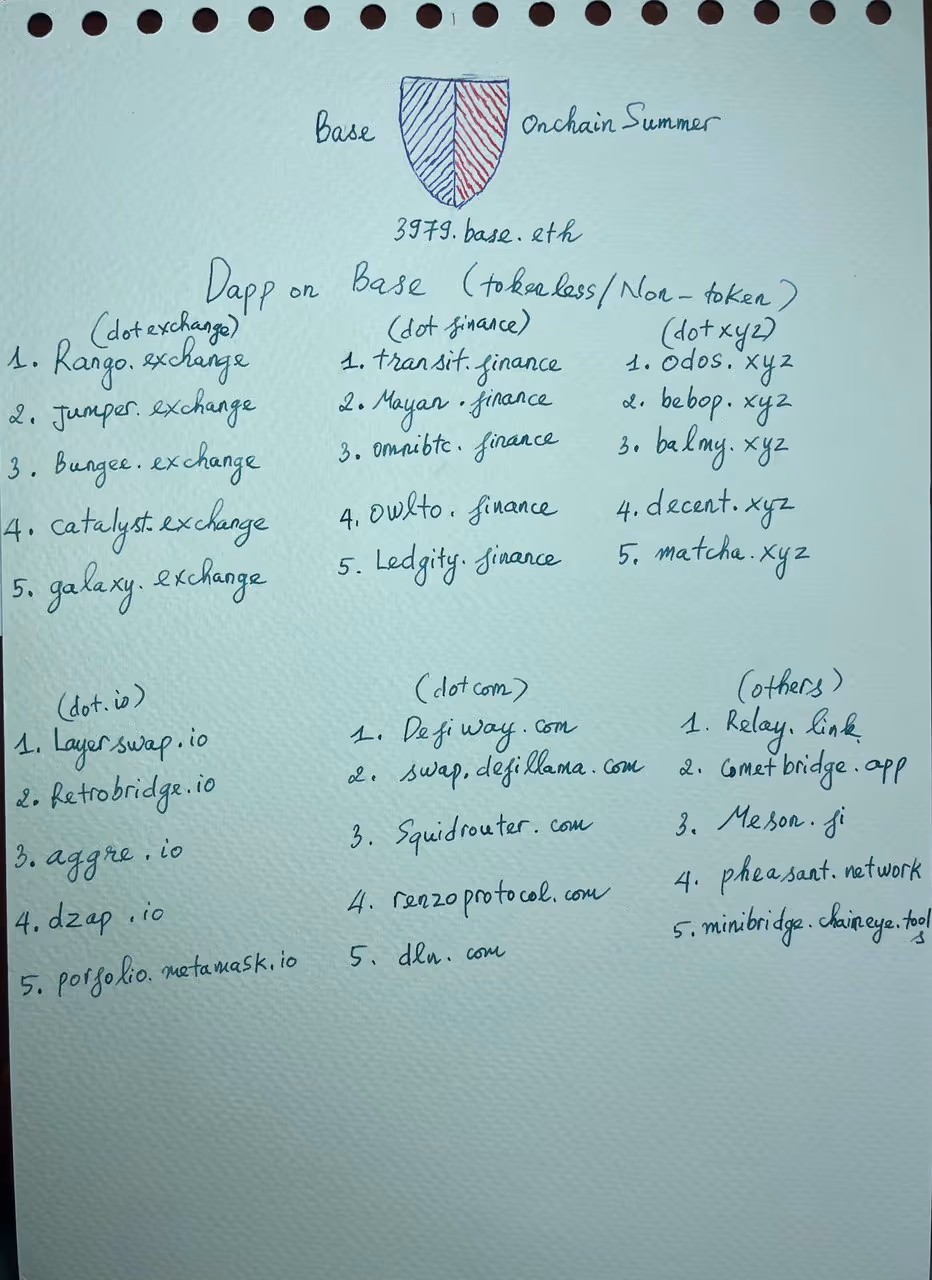 Base
Onchain Summer
3979.base.eth
Dapp on Base (tokenless/Non-token)
(dot exchange)
1. Rango.exchange
2. Jumper.exchange
3. Bungee.exchange
4. catalyst.exchange
5. galaxy.exchange
(dot finance)
1. transit.finance
2. Mayan.finance
3. omnibtc.finance
4. owlto.finance
5. Ledgity.finance
(dot xyz)
1. odos.xyz
2. bebop.xyz
3. balmy.xyz
4. decent.xyz
5. matcha.xyz
(dot.io)
1. Layerswap.io
2. Retrobridge.io
3. aggre.io
4. dzap.io
5. porfolio.metamask.io
(dotcom)
1. Defiway.com
2. swap.defillama.com
3. Squidrouter.com
4. renzoprotocol.com
5. dln.com
(others)
1. Relay.link
2. Cometbridge.app
3. Meson.fi
4. pheasant.network
5. minibridge.chaineye.tools